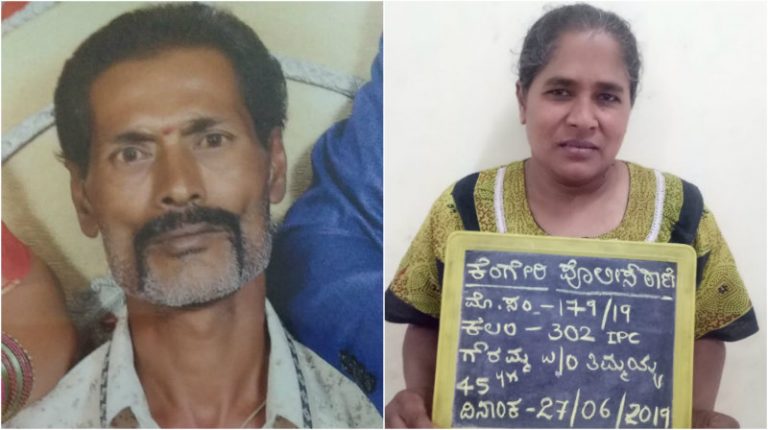 ಕೆಂಗೇರಿ ಪೊಲೀಸ್ ಠಾಣೆ
ಮೊ.ಸಂ - 179/19
ಕಲಂ - 302 IPC
ಗೌರಮ್ಮ W/O ತಿಮ್ಮಯ್ಯ
45 yrs
ದಿನಾಂಕ - 27/06/2019